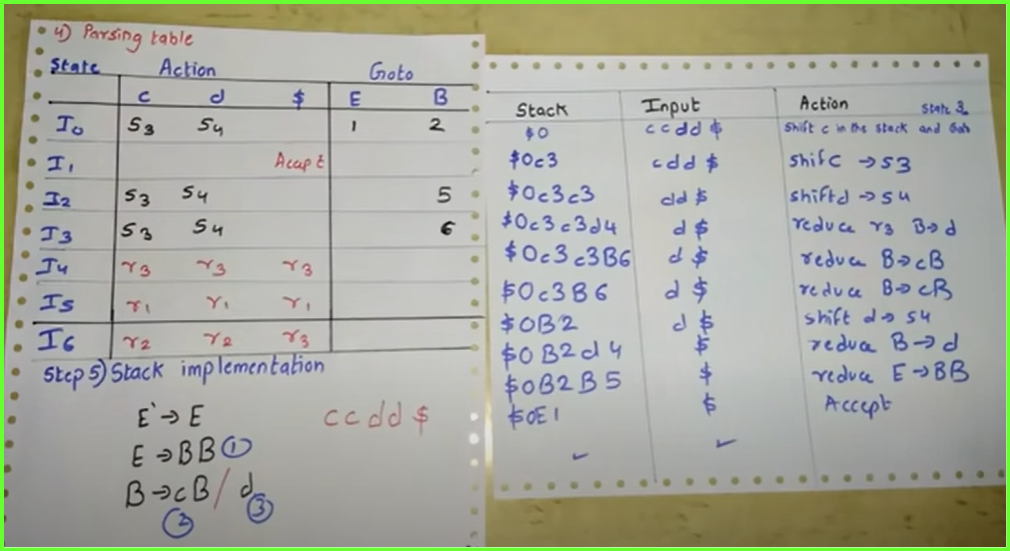 4) Parsing table
State Action Goto
c d $ E B
I0 S3 S4 1 2
I1 Accept
I2 S3 S4 5
I3 S3 S4 6
I4 r3 r3 r3
I5 r1 r1 r1
I6 r2 r2 r3
Step 5) Stack implementation
E' → E
ccdd$
E → BB ①
B → cB / d
② ③
Stack Input Action State 3.
$0 ccdd$ Shift c in the stack and Goto
$0c3 cdd$ shift c → S3
$0c3c3 dd$ shift d → S4
$0c3c3d4 d$ reduce r3 B → d
$0c3c3B6 d$ reduce B → cB
$0c3B6 d$ reduce B → cB
$0B2 d$ shift d → S4
$0B2d4 $ reduce B → d
$0B2B5 $ reduce E → BB
$0E1 $ Accept